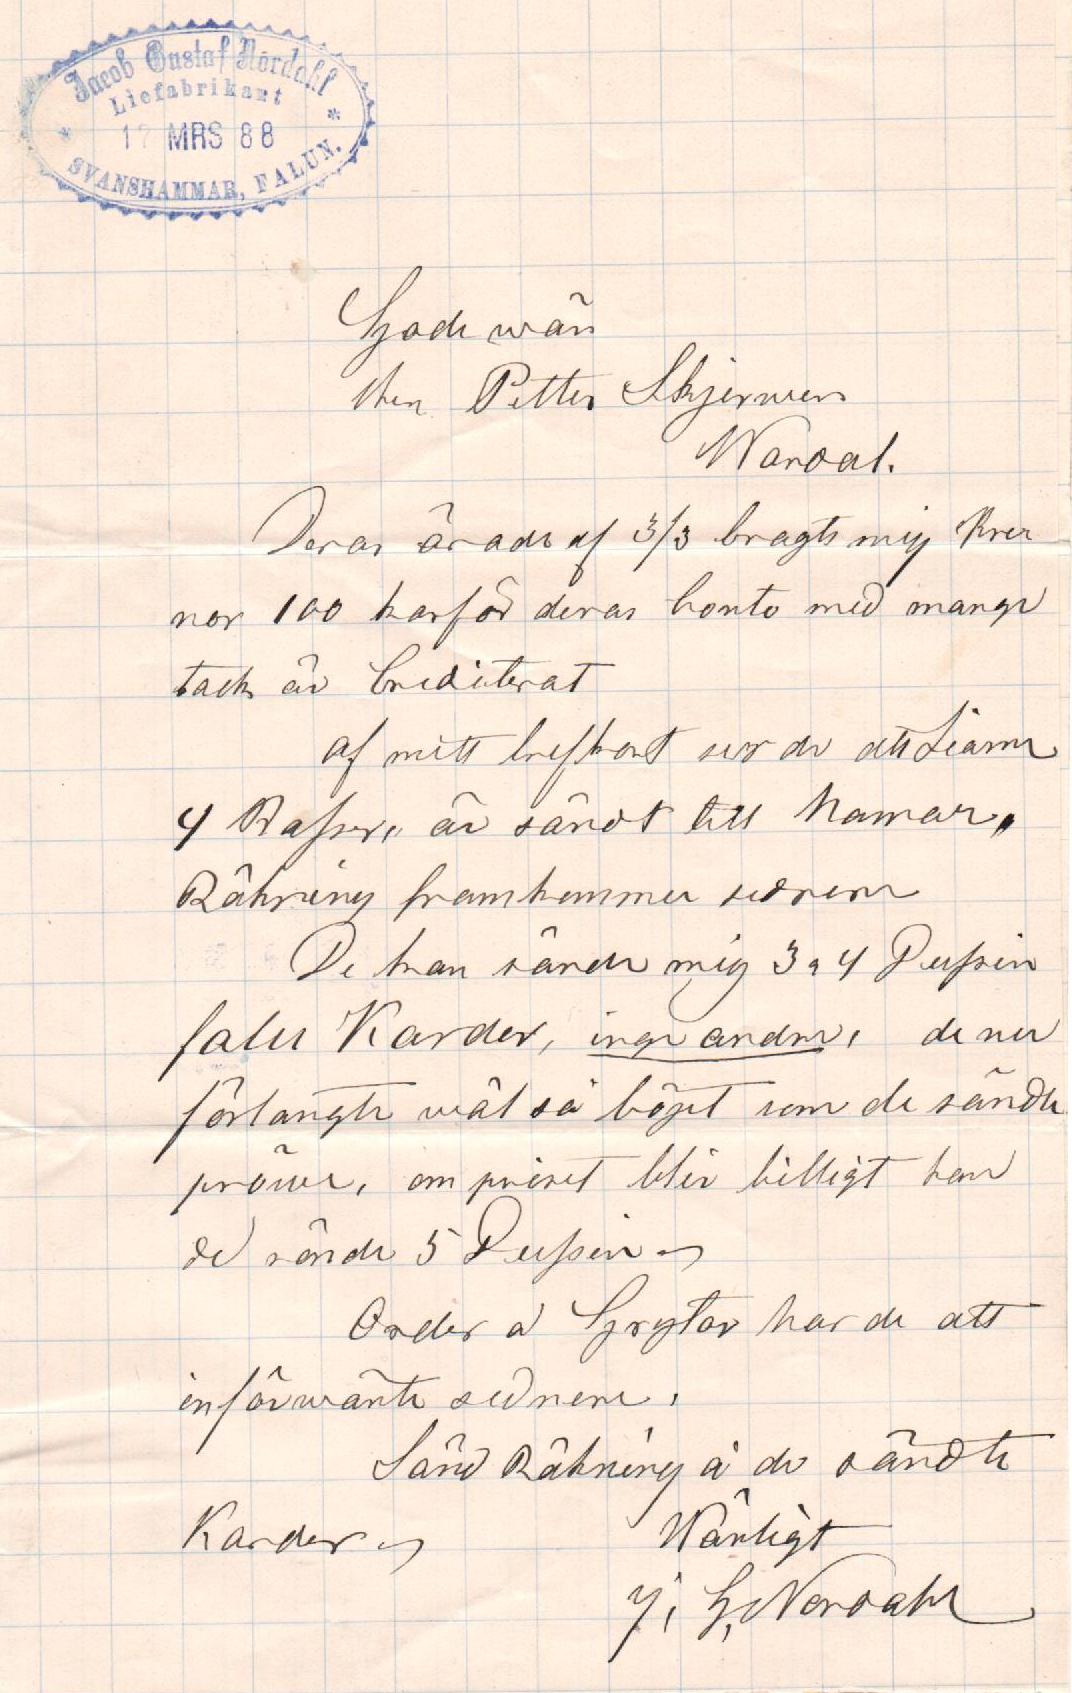 Jacob Gustaf Nordahl
Liefabrikant
17 MRS 88
SVANSHAMMAR, FALUN.
Gode wän
Petter Skjerwen
Wardal.
Deras ärade af 3/3 bragte mig Kro
nor 100 deras konto med mange
tack är krediterat
af mitt brefkort ser de att Liarne
4 Kasser, är sändt till Hamar.
Räkning framkommer sednere
De kan sände mig 3 a 4 Dussin
falu Karder, inge andre, de nu
förlangte wäl så höget som de sändte
pröwe, om priset blir billigt kan
de sände 5 Dussin
Order å Grytor har de att
införwänte sednere.
Sänd Räkning å de sändte
Karder
Wänligt
J. G. Nordahl